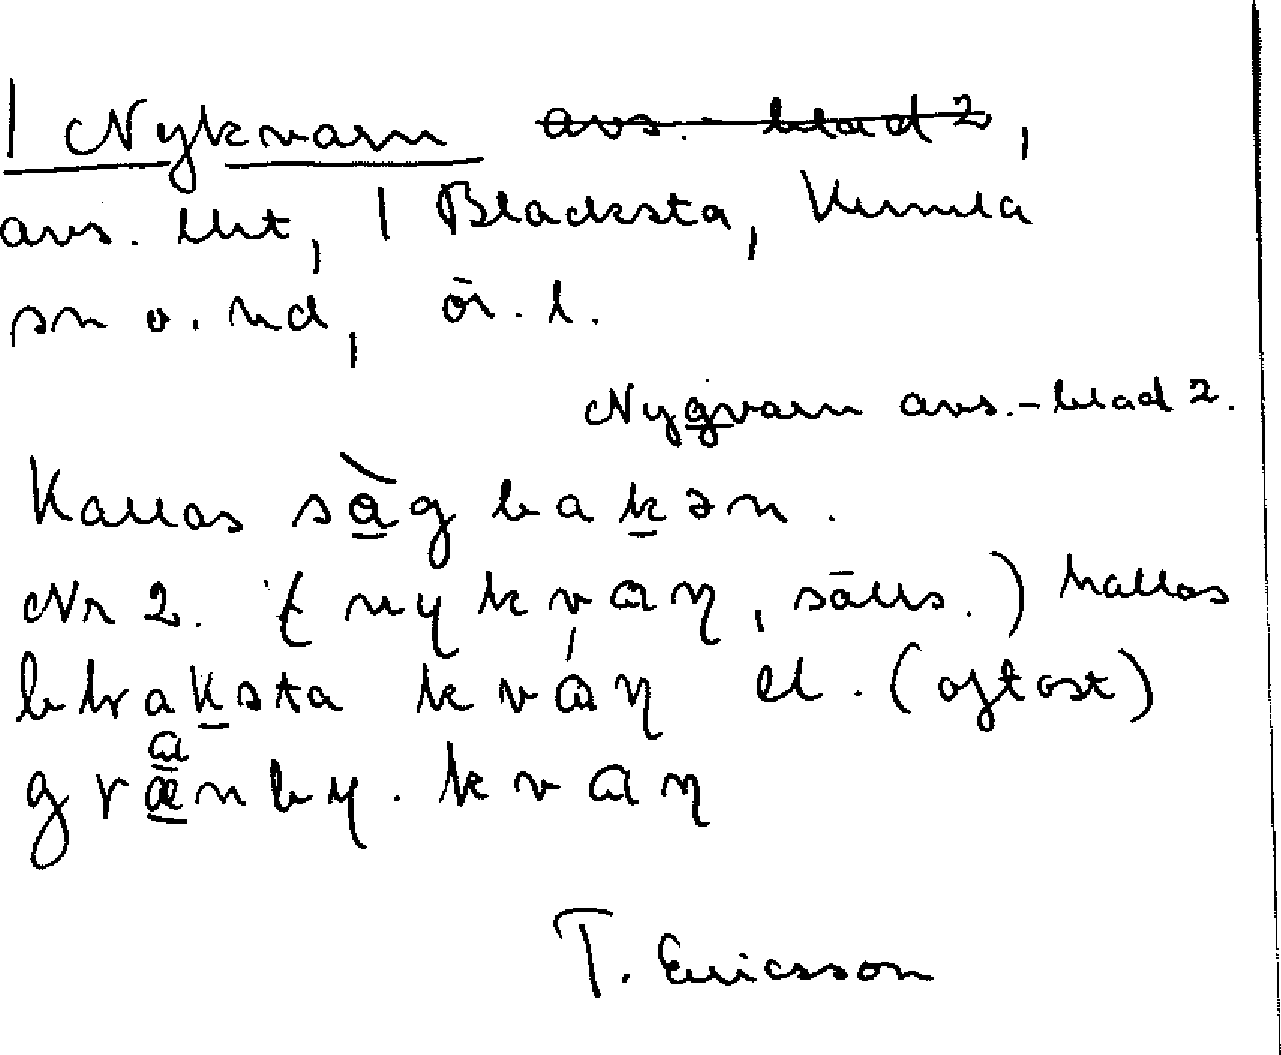 | Nykvarn avs.-blad 2,
avs. lht, | Blacksta, Kumla
sn o. hd, Ör. l.
Nygvarn avs.-blad 2.
Kallas såg bakən.
Nr 2. (nykvαη, sälls.) kallas
blraksta kvαη el. (oftast)
grænby. kvαη
T. Ericsson